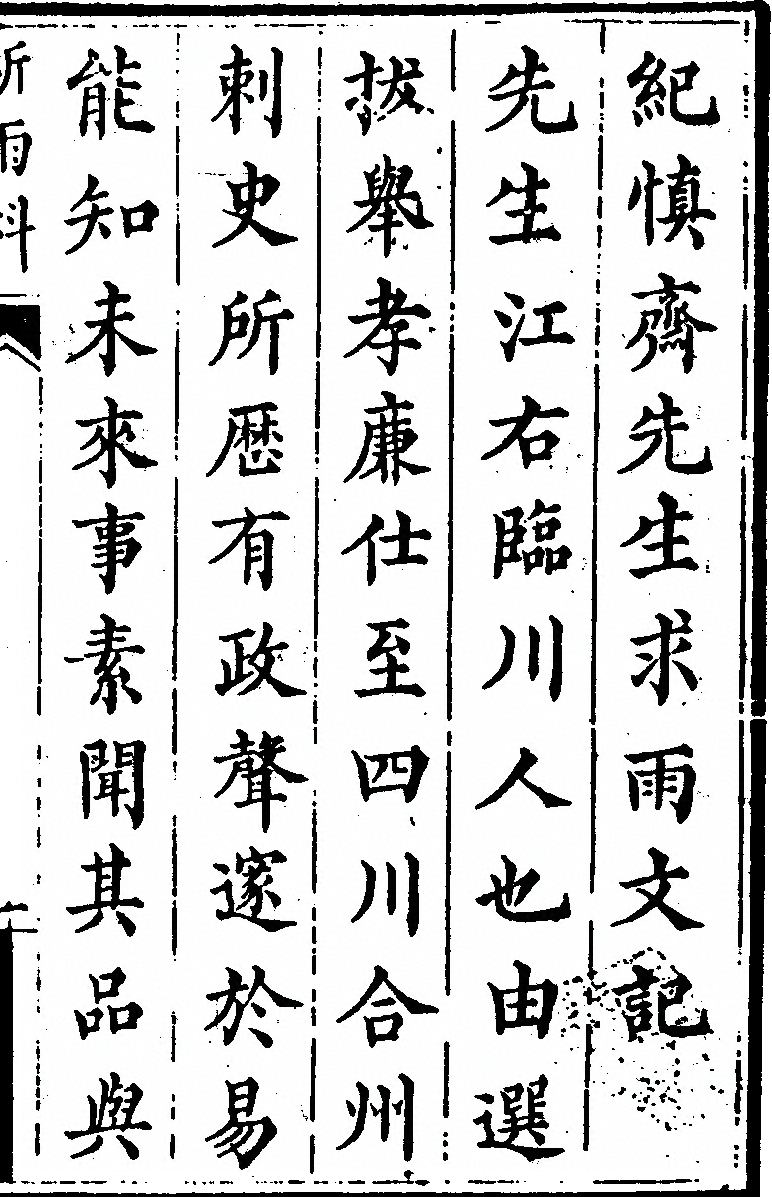 紀慎齋先生求雨文記
先生江右臨川人也由選
拔舉孝廉仕至四川合州
刺史所歷有政聲邃於易
能知未來事素聞其品與
祈雨科